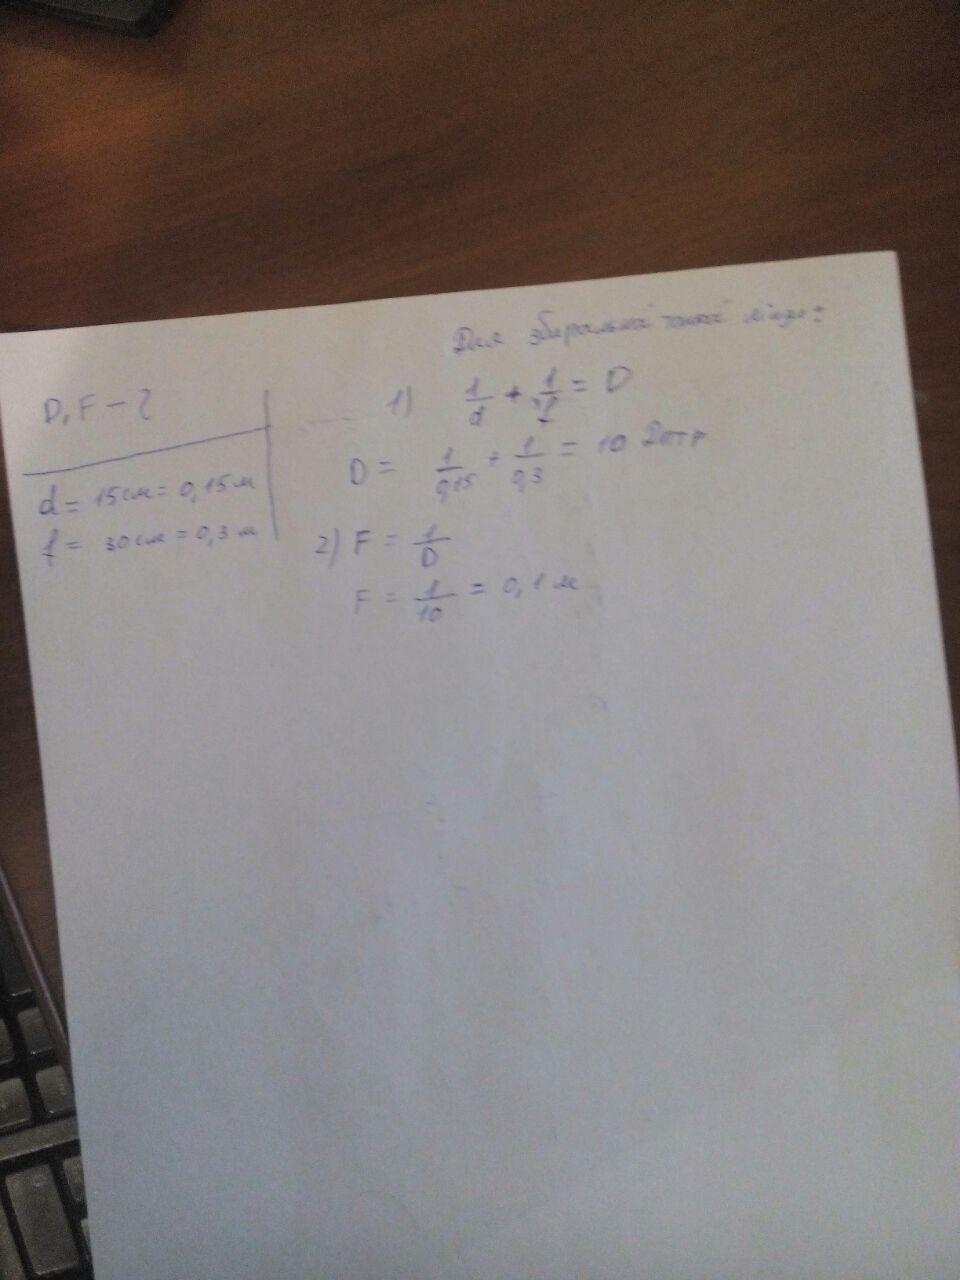 Для збиральної тонкої лінзи:
D, F - ?
d = 15 см = 0,15 м
f = 30 см = 0,3 м
1) 1/d + 1/f = D
D = 1/0,15 + 1/0,3 = 10 Дптр
2) F = 1/D
F = 1/10 = 0,1 м